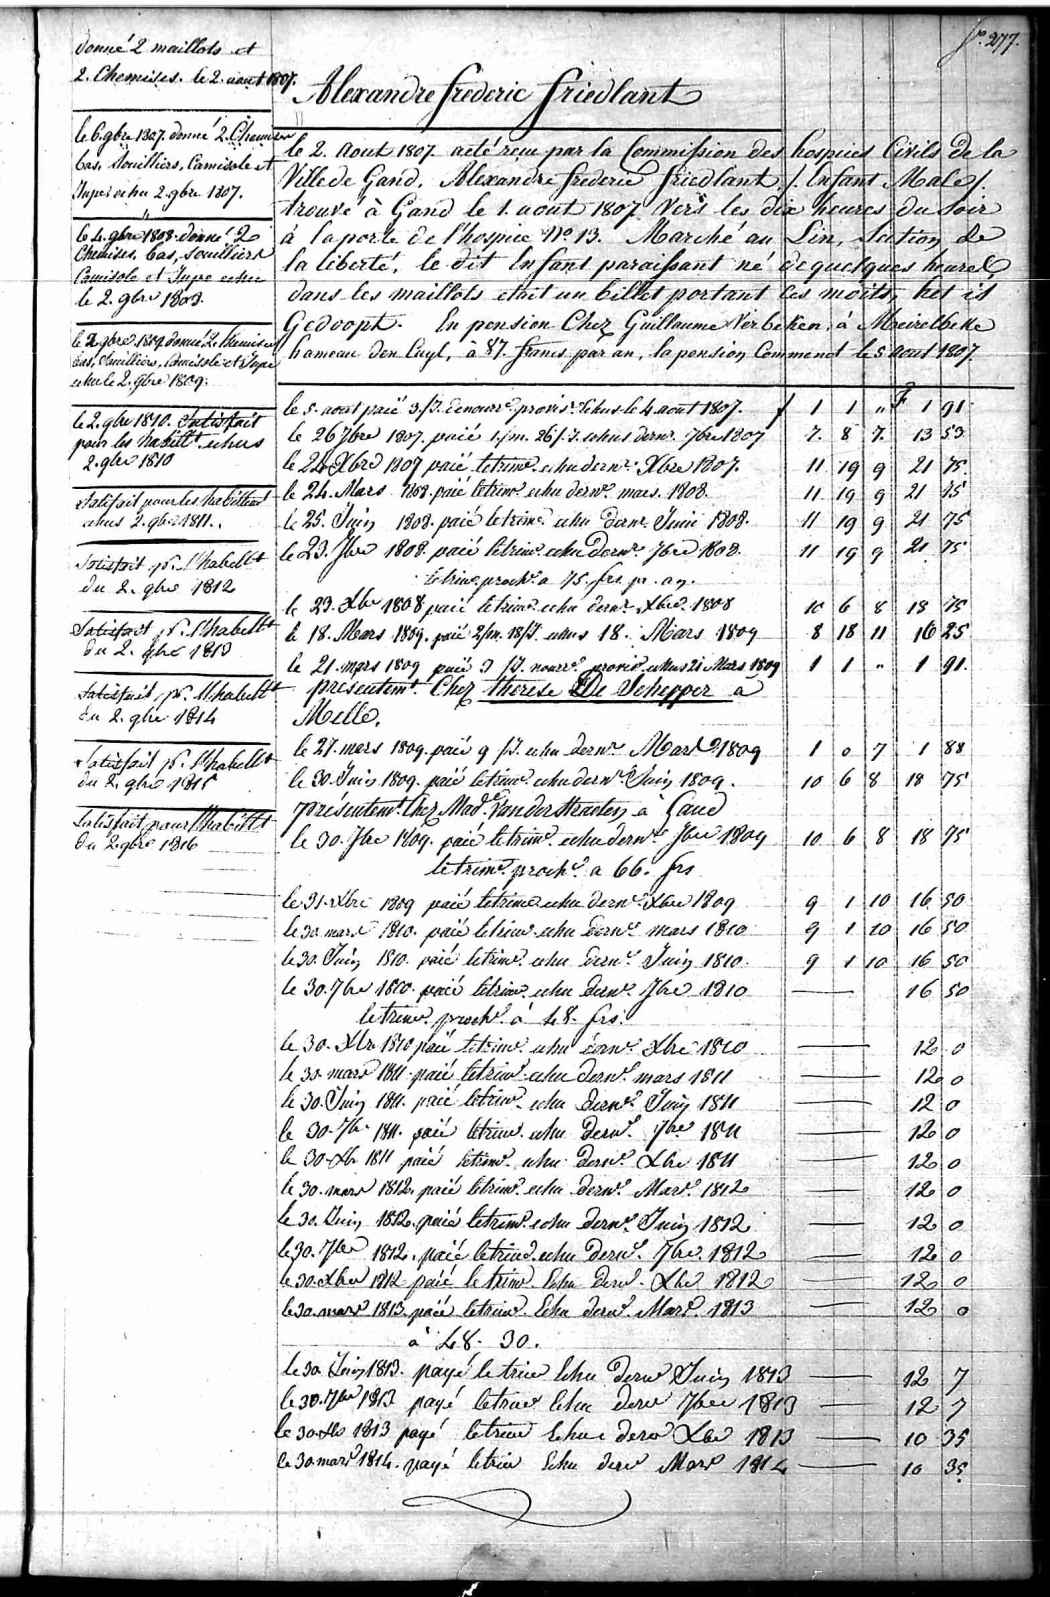 fo. 277.
donné 2 maillots et
2. Chemises. le 2. aout 1807.
le 6. gbre 1807. donné 2. Chemises
bas, Souilliers, Camisole et
Jupe echu 2. gbre 1807.
le 4. gbre 1808. donné 2
Chemises, bas, Souilliers
Camisole et Jupe echu
le 2. gbre 1808.
le 2 gbre 1809 donné 2. Chemises
bas, Souilliers, Camisole et Jupe
echu le 2. gbre 1809.
le 2. gbre 1810. Satisfait
pour les habillts. echus
2. gbre 1810
Satisfait pour les habillts
echus 2. gbre 1811.
Satisfait pr. l'habillt
du 2. gbre 1812
Satisfait pr. l'habillt
du 2. gbre 1813
Satisfait pr. l'habillt
du 2. gbre 1814
Satisfait pr. l'habillt
du 2. gbre 1815
Satisfait pour l'habillt
du 2 gbre 1816
Alexandre frederic friedlant
le 2. aout 1807. a eté recu par la Commission des hospices Civils de la
Ville de Gand. Alexandre frederic friedlant /. Enfant Male /.
trouvé à Gand le 1. aout 1807 Vers les dix heures du Soir
à la porte de l'hospice No. 13. Marché au Lin, Section de
la liberté, le dit Enfant paraissant né de quelques heures
dans les maillots etait un billet portant ces mots, het is
Gedoopt. En pension Chez Guillaume Verbeken, à Meirelbeke
hameau den Cuyl, à 87. francs par an, la pension Commencé le 5 aout 1807
le 5. aout paié 3. /J. de nourre. provisr. Echus le 4 aout 1807. / 1 1 " F 1 91.
le 26 7bre 1807. paié 1. /m. 26 /J. echus dernr. 7bre 1807 7. 8 7. 13 53
le 24 Xbre 1807 paié le trimr. echu dernr. Xbre 1807. 11 19 9 21 75.
le 24. Mars 1808. paié le trimr. echu dernr. mars. 1808. 11 19 9 21 75
le 25. Juin 1808. paié le trimr. echu dernr. Juin 1808. 11 19 9 21 75
le 23. 7bre 1808. paié le trimr. echu dernr. 7bre 1808. 11 19 9 21 75
le trimr. prochr. a 75. frs. pr. an.
le 23. Xbre 1808 paié le trimr. echu dernr. Xbre. 1808 10 6 8 18 75
le 18. Mars 1809. paié 2/m. 18/J. echus 18. Mars 1809 8 18 11 16 25
le 21. mars 1809 paié 3 /J. nourre. provisr. echus 21 Mars 1809 1 1 " 1 91.
présentemt. Chez therese De Schepper à
Melle.
le 27. mars 1809. paié 9 /J. echu dernr. Mars 1809 1 0 7 1 88
le 30. Juin 1809. paié le trimr. echu dernr. Juin 1809. 10 6 8 18 75
présentemt. Chez Made. Vanderstraeten à Gand
le 30. 7bre 1809. paié le trimr. echu dernr. 7bre 1809 10 6 8 18 75
le trimr. prochr. a 66. frs
le 31. Xbre 1809 paié le trimr. echu dernr. Xbre 1809 9 1 10 16 50
le 30 mars 1810. paié le trimr. echu dernr. mars 1810 9 1 10 16 50
le 30. Juin 1810. paié le trimr. echu dernr. Juin 1810. 9 1 10 16 50
le 30. 7bre 1810. paié le trimr. echu dernr. 7bre 1810 — 16 50
le trimr. prochr. à 48. frs.
le 30. Xbre 1810 paié le trimr. echu dernr. Xbre 1810 — 12 0
le 30 mars 1811. paié le trimr. echu dernr. mars 1811 — 12 0
le 30. Juin 1811. paié le trimr. echu dernr. Juin 1811 — 12 0
le 30. 7bre 1811. paié le trimr. echu dernr. 7bre 1811 — 12 0
le 30 Xbre 1811 paié le trimr. echu dernr. Xbre 1811 — 12 0
le 30. mars 1812. paié le trimr. echu dernr. Mars. 1812 — 12 0
le 30. Juin 1812. paié le trimr. echu dernr. Juin 1812 — 12 0
le 30. 7bre 1812. paié le trimr. echu dernr. 7bre. 1812 — 12 0
le 30. Xbre 1812 paié le trimr. Echu dernr. Xbre 1812 — 12 0
le 30. mars 1813. paié le trimr. Echu dernr. Mars. 1813 — 12 0
à 48. 30.
le 30 Juin 1813. payé le trimr Echu dernr Juin 1813 — 12 7
le 30. 7bre 1813 payé le trimr Echu dernr 7bre 1813 — 12 7
le 30 Xbre 1813 payé le trimr Echu dernr Xbre 1813 — 10 35
le 30 mars 1814. payé le trimr Echu dernr Mars 1814 — 10 35